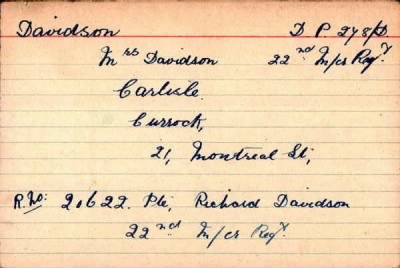 Davidson D P. 278/D
Mrs Davidson 22nd M/cr Regt.
Carlisle.
Currock,
21, Montreal St,
R.No: 20622. Pte, Richard Davidson
22nd M/cr Regt.